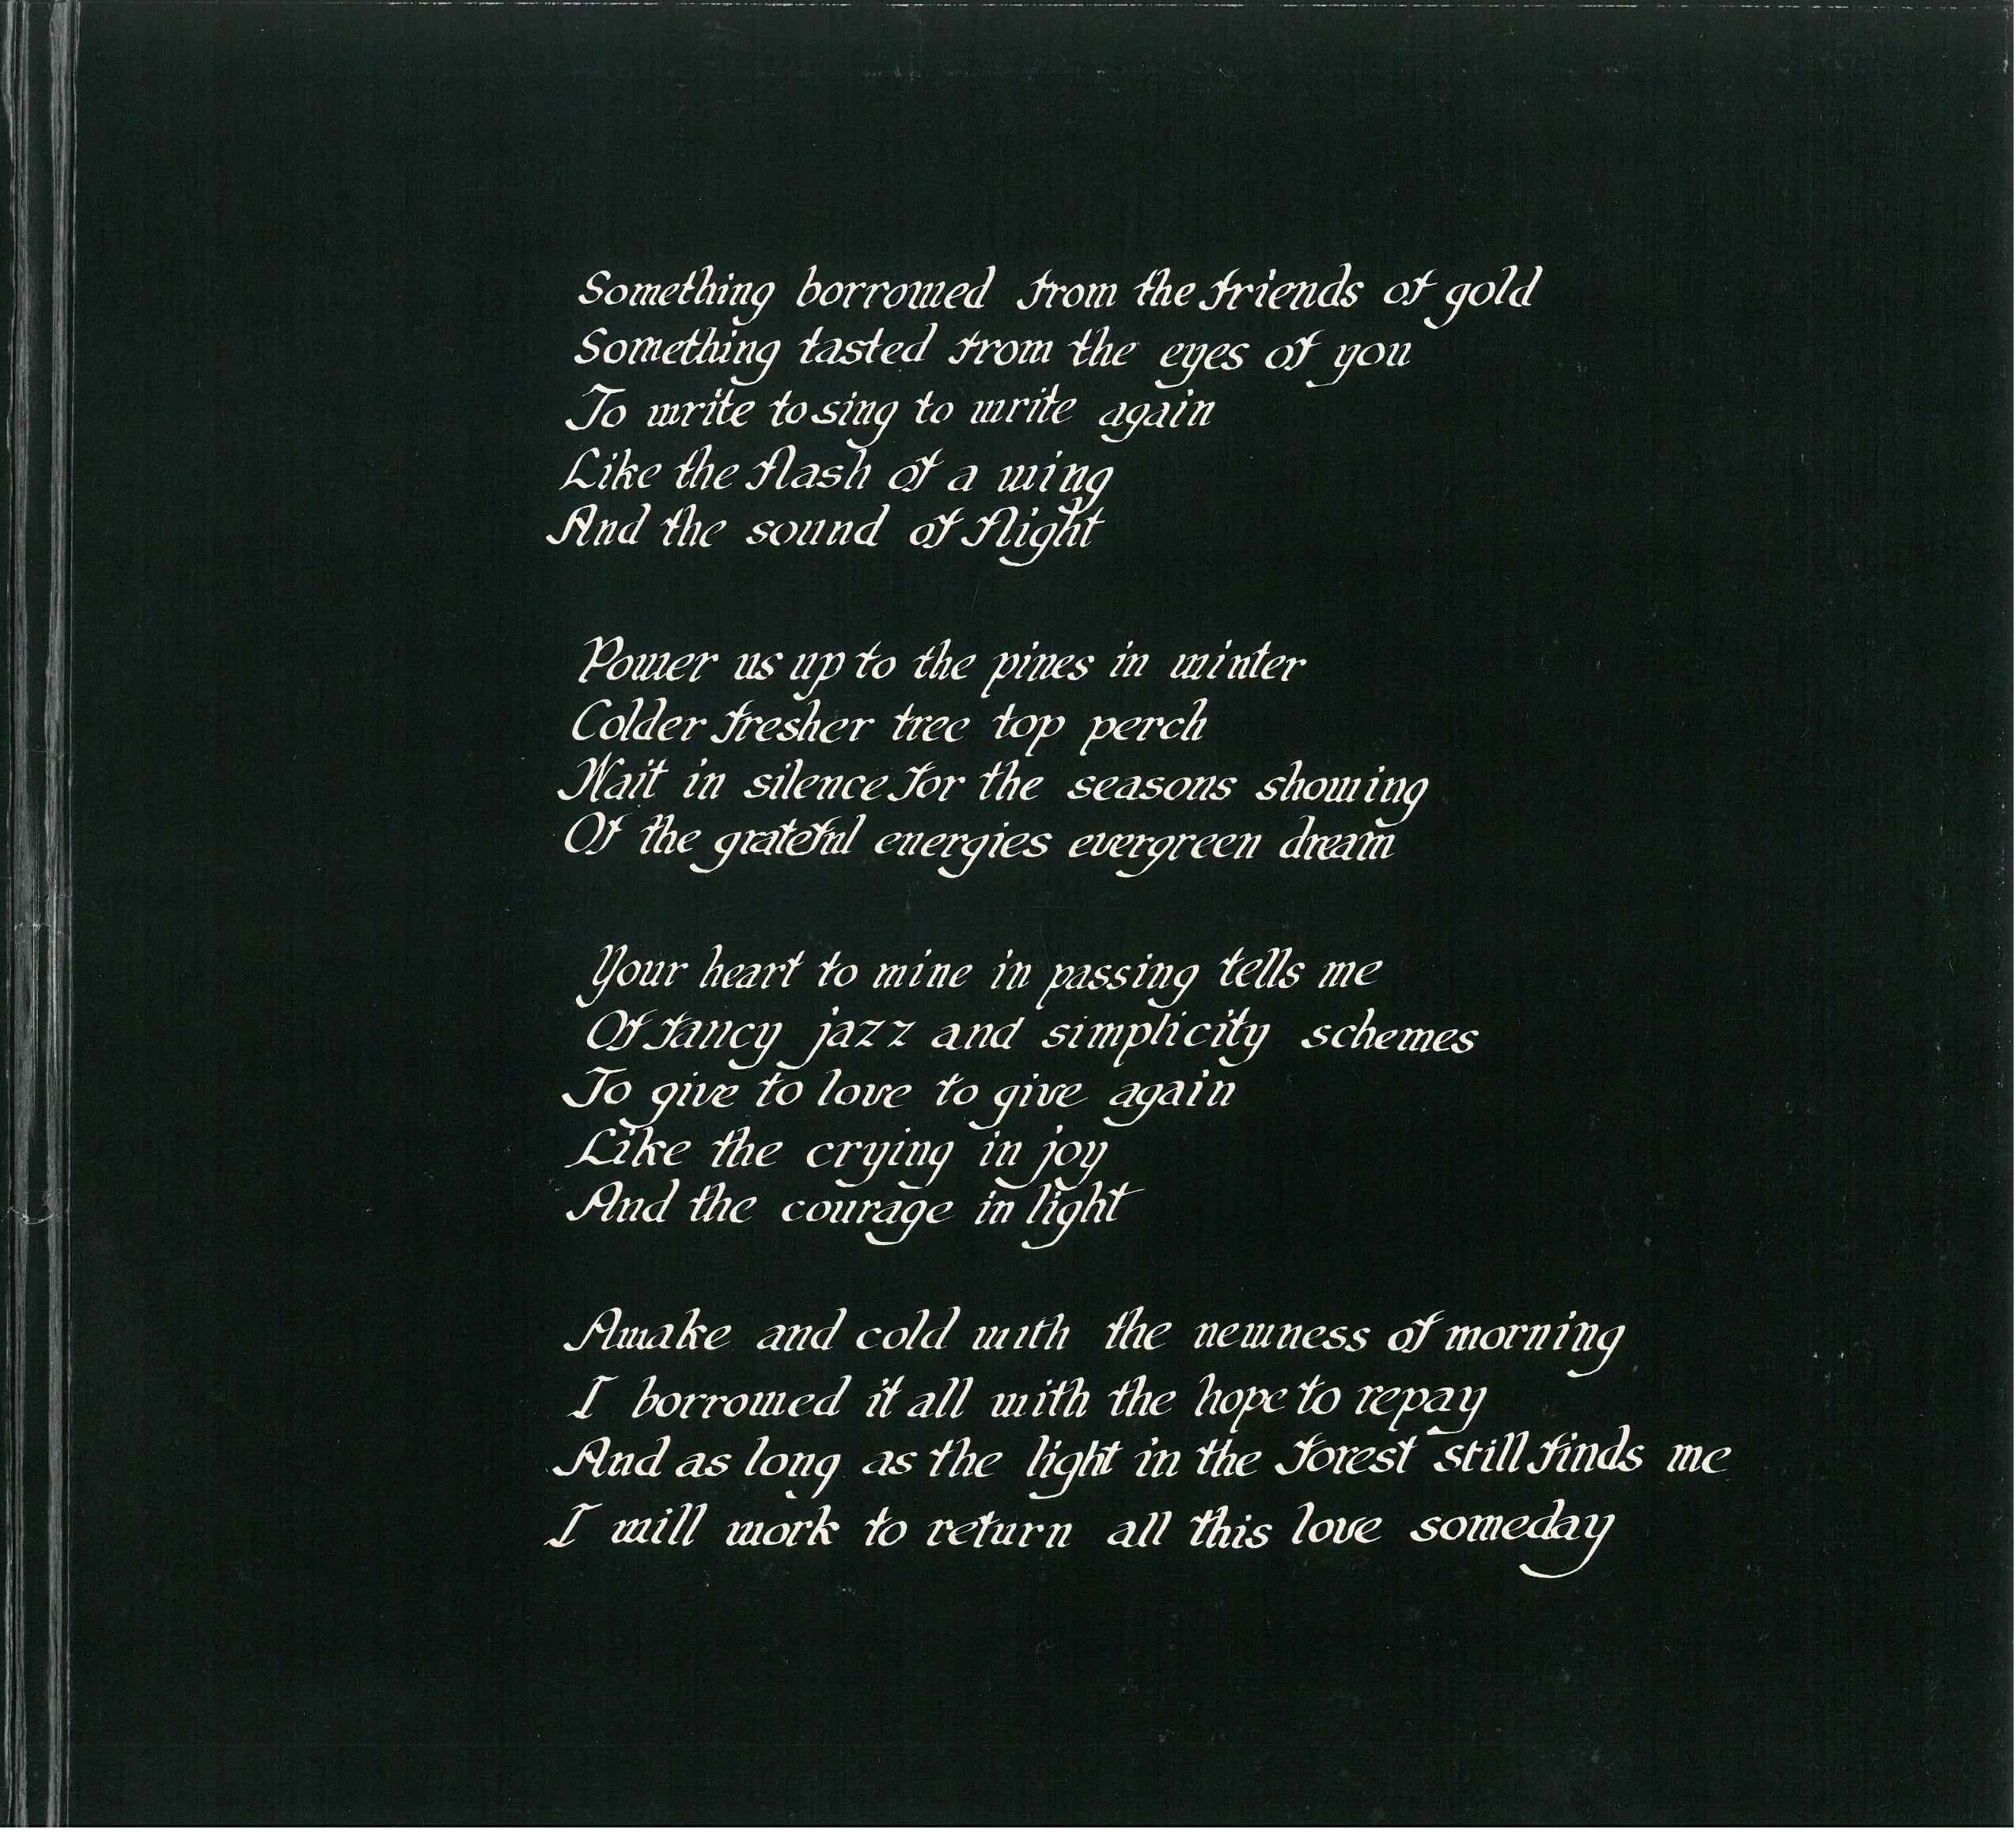 Something borrowed from the friends of gold
Something tasted from the eyes of you
To write to sing to write again
Like the flash of a wing
And the sound of flight
Power us up to the pines in winter
Colder fresher tree top perch
Wait in silence for the seasons showing
Of the grateful energies evergreen dream
Your heart to mine in passing tells me
Of fancy jazz and simplicity schemes
To give to love to give again
Like the crying in joy
And the courage in light
Awake and cold with the newness of morning
I borrowed it all with the hope to repay
And as long as the light in the forest still finds me
I will work to return all this love someday